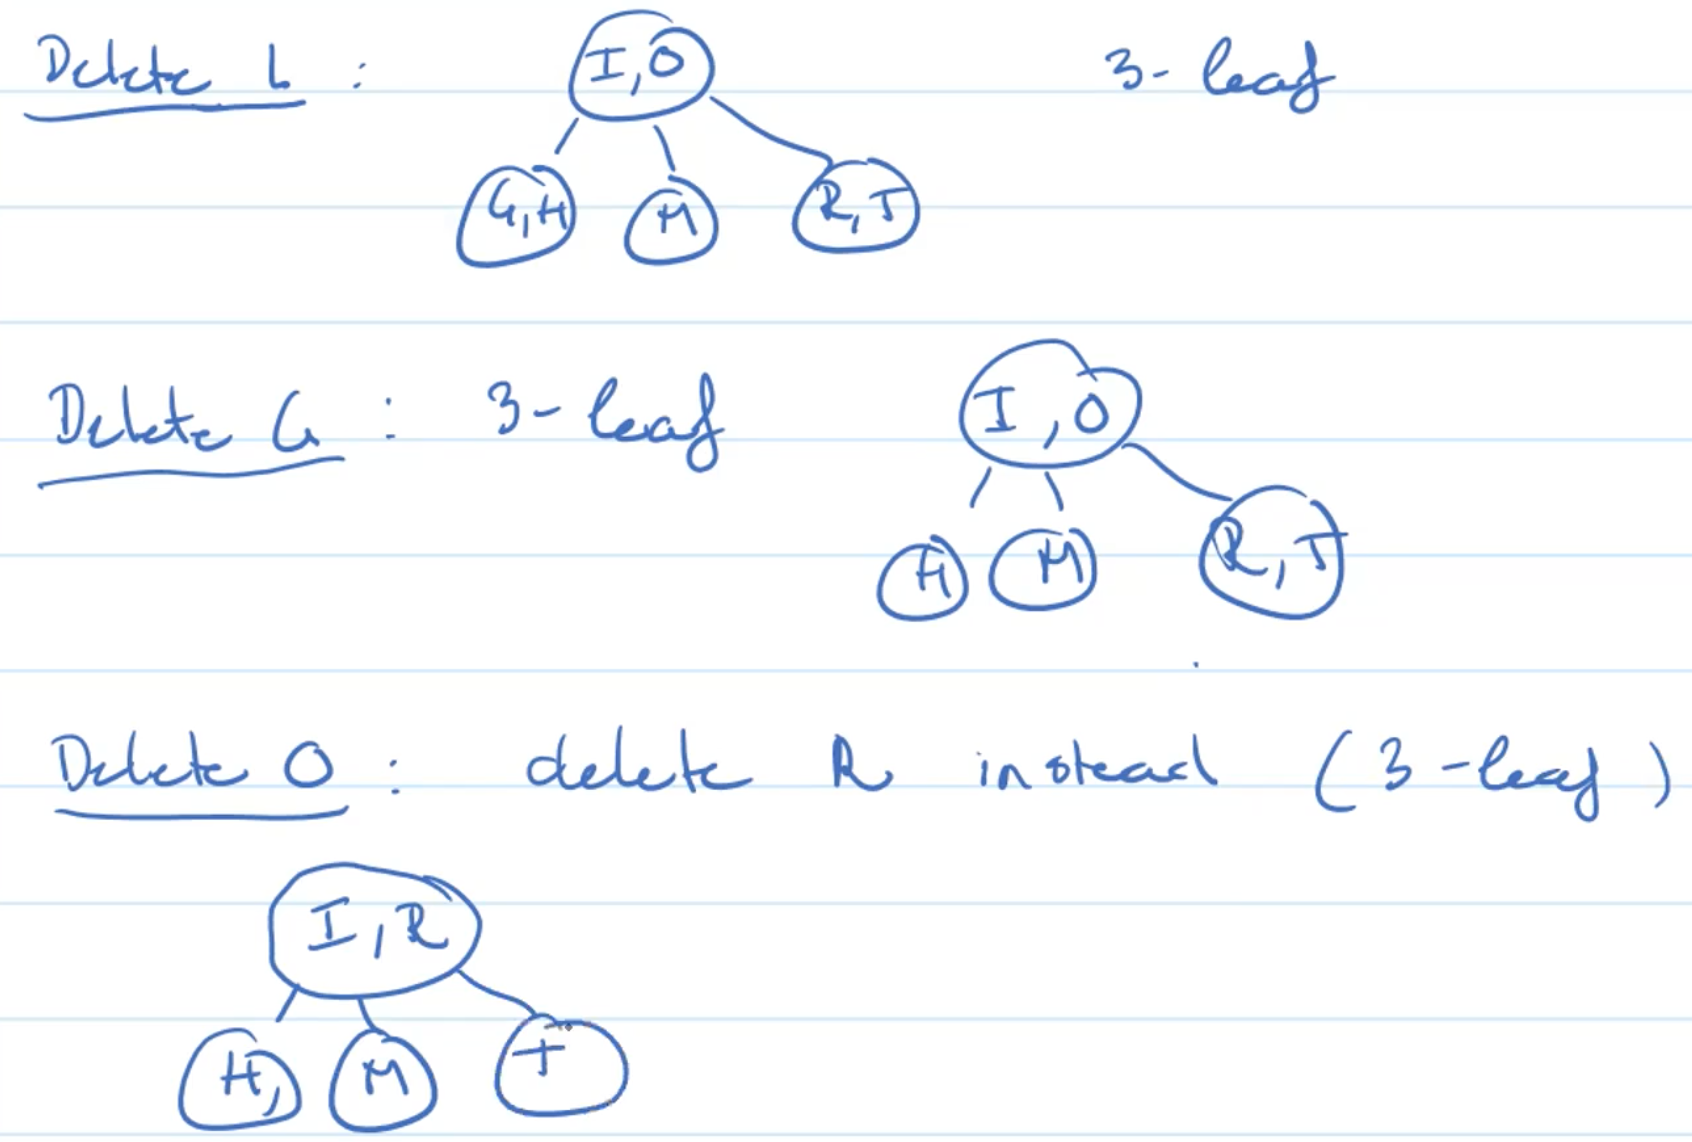 Delete L : I, O 3-leaf
G, H M R, T
Delete G : 3-leaf I, O
H M R, T
Delete O : delete R instead (3-leaf)
I, R
H, M T